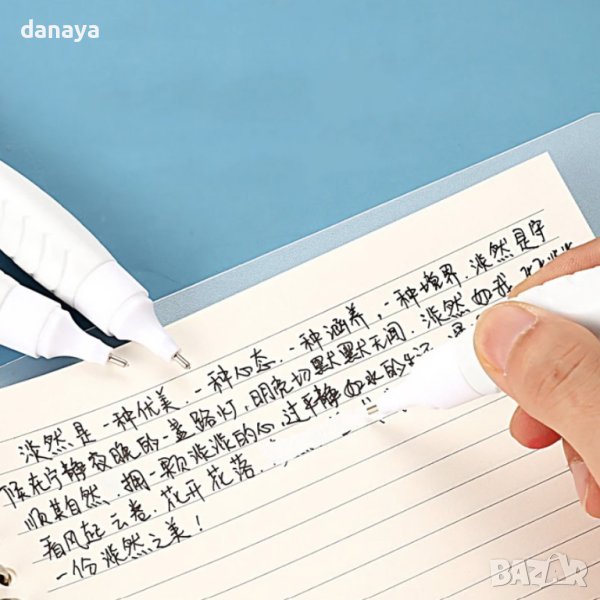 danaya
淡然是一种优美，一种心态，一种涵养，一种境界，淡然是宁
候在宁静夜晚的一盏路灯，明亮切默默无闻，淡然如我
顺其自然，拥一颗淡淡的心，过平静如水的生活
看风起云卷，花开花落
一份淡然之美！
BAZAR